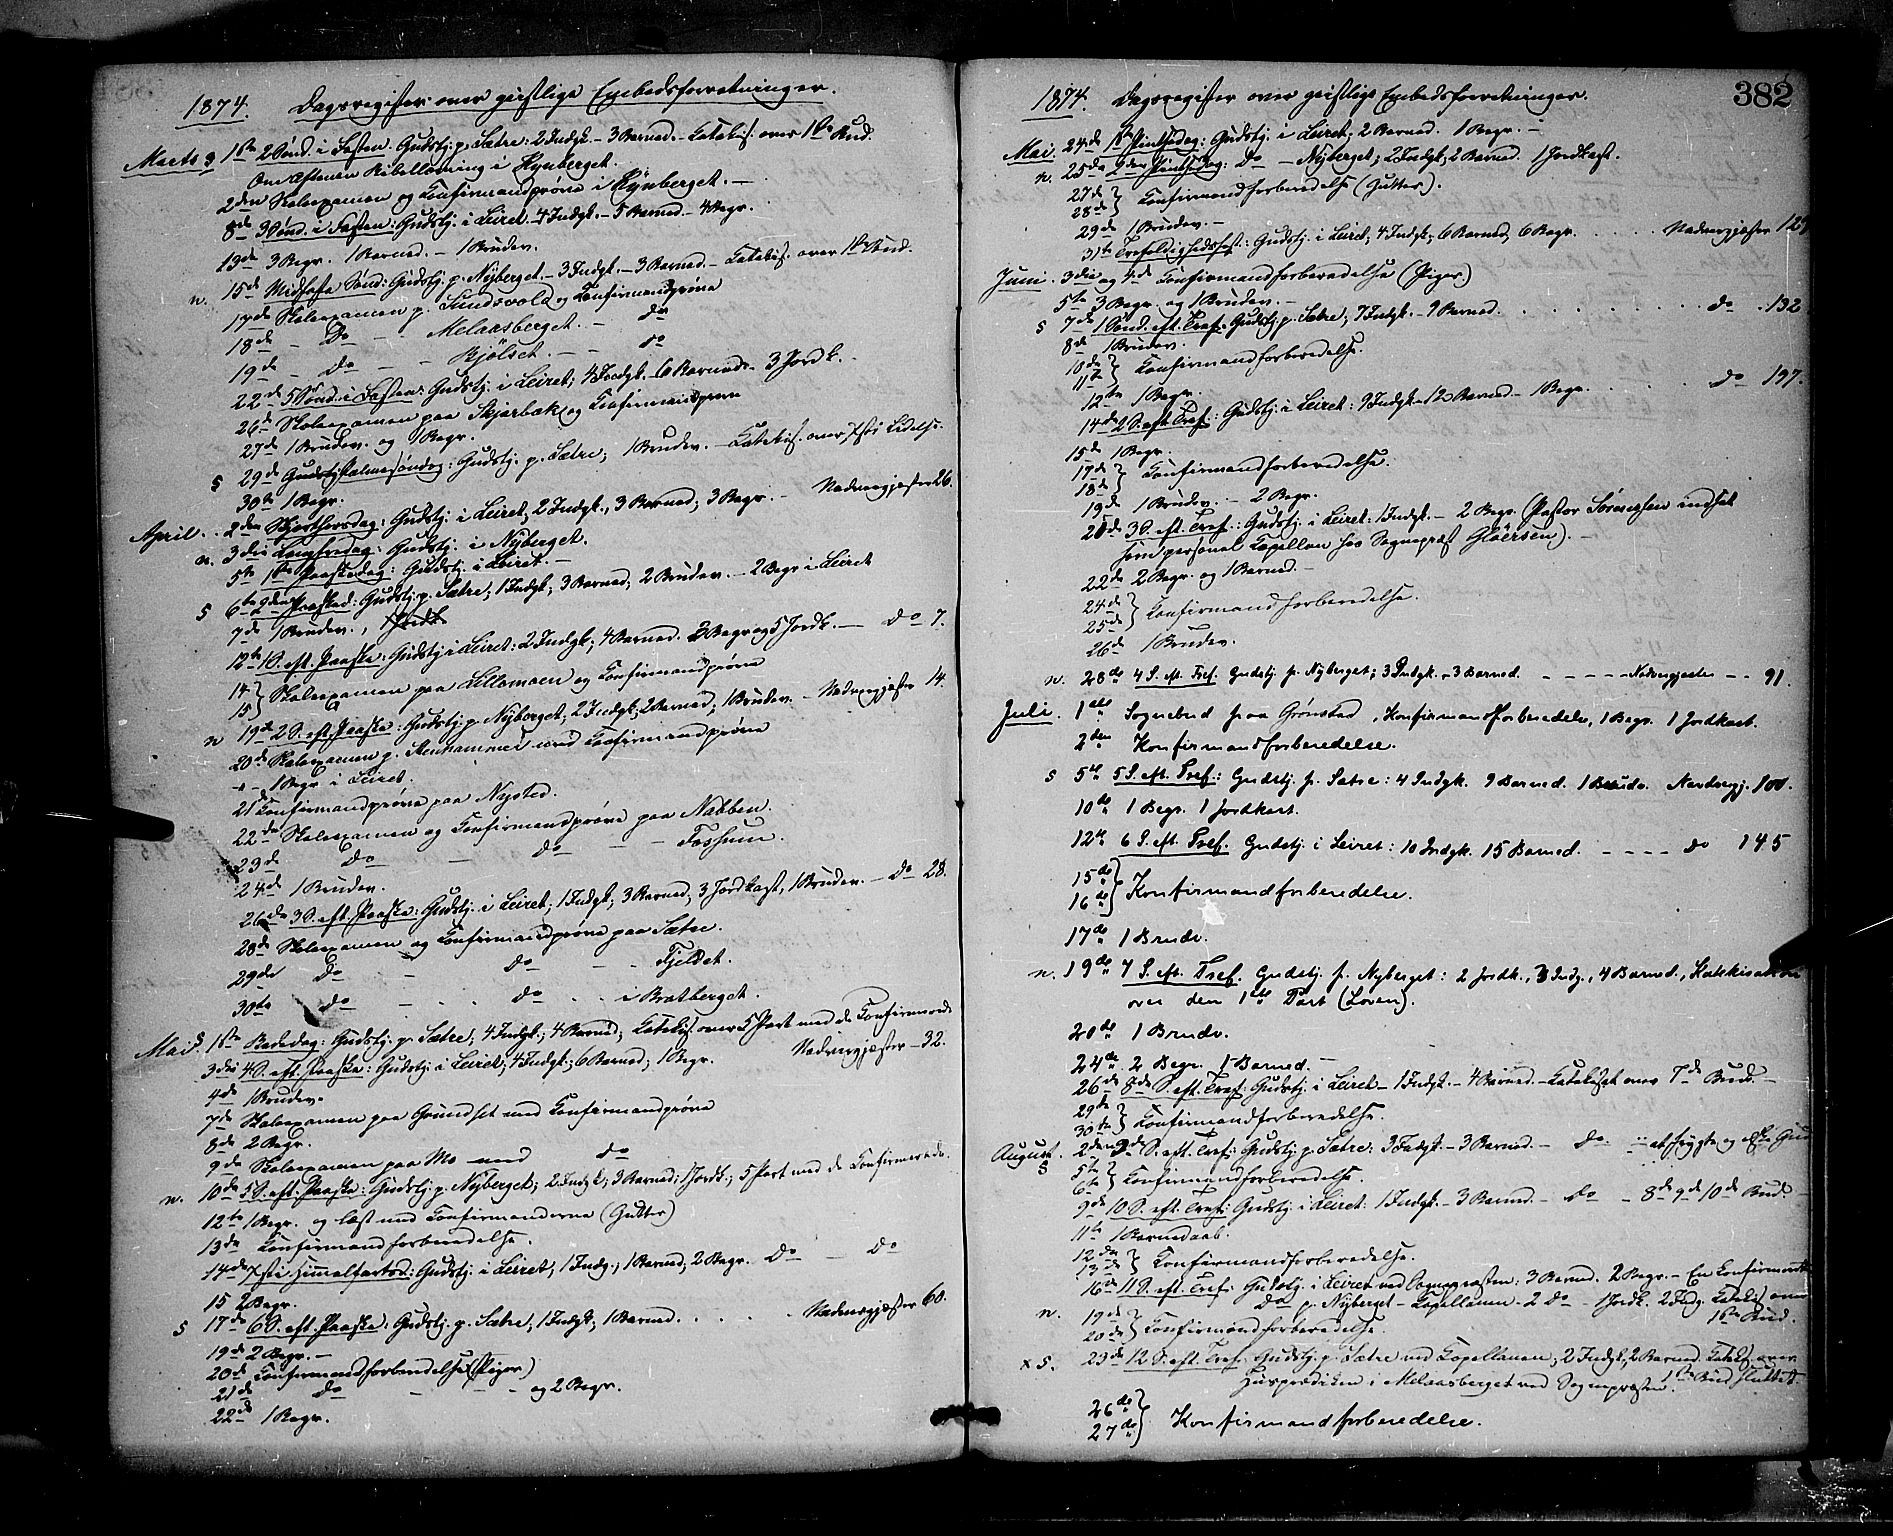 1874. Dagsregister over geistlige Embedsforretninger.
Marts s 1ste 2 Sønd. i Fasten. Gudstj. p. Sætre: 2 Indgk. - 3 Barned. - Katekis. over 1ste Bud.
Om Aftenen Bibellæsning i Nÿberget.
2den Skoleexamen og Confirmandprøve i Nÿberget. -
8de 3 Sønd. i Fasten: Gudstj. i Leiret. 4 Indgk. - 5 Barned. - 4 Begr.
13de 3 Begr. 1 Barned. - 1 Brudev.
n. 15de Midfaste Sønd: Gudstj. p. Nÿberget. - 3 Indgk. - 3 Barned. - Katekis. over 1ste Bud.
17de Skoleexamen p. Sundvold og Confirmandprøve
18de - Do - - Melaasberget. - do
19de - do - - Kjølset. - - do
22de 5 Sønd. i Fasten Gudstj. i Leiret; 4 Indgk. - 6 Barned. - 3 Jordk.
26de Skoleexamen paa Skjærbæk og Confirmandprøve
27de 1 Brudev. og 1 Begr.
s 29de Palmesøndag: Gudstj. p. Sætre; 1 Brudev. - Katekis. over Xsti Lidelse.
30te 1 Begr.
April. 2den Skjærthorsdag: Gudstj. i Leiret; 2 Indgk., 3 Barned; 3 Begr. - Nadvergjæster 26.
n. 3die Langfredag: Gudstj. i Nÿberget.
5te 1ste Paaskedag: Gudstj. i Leiret. -
s 6te 2den Paasked: Gudstj. p. Sætre; 1 Indgk; 3 Barned; 2 Brudev. - 2 Begr i Leiret
7de 1 Brudev.,
12te 1 S. eft. Paaske: Gudstj i Leiret: 2 Indgk; 4 Barned. 3 Begr og 5 Jordk. - Do 7.
14
15} Skoleexamen paa Lillemoen og Confirmandprøve
n 19de 2 S. eft. Paaske: Gudstj. p. Nÿberget; 2 Indgk; 2 Barned; 1 Brudev. - Nadvergjæster 14.
20de Skoleexamen p. Stenhammer med Confirmandprøve
- - 1 Begr i Leiret.
21 Confirmandprøve paa Nysted.
22de Skoleexamen og Confirmandprøve paa Nabben.
23de do - do - - Fossum.
24de 1 Brudev.
26de 3 S. eft. Paaske: Gudstj. i Leiret; 1 Indgk; 3 Barned; 3 Jordkast, 1 Brudev. - do 28.
28de Skoleexamen og Confirmandprøve paa Sætre.
29de do - do - - Fjeldet.
30te do - do . . i Bratberget.
Mai s. 1ste Bededag: Gudstj. p. Sætre; 4 Indgk; 4 Barned; Katekis. over 5 Part med de Confirmerede
3die 4 S. eft. Paaske: Gudstj i Leiret; 4 Indgk; 6 Barned; 1 Begr. Nadvergjæster - 32.
4de 1 Brudev.
7de Skoleexamen paa Grundset med Confirmandprøve
8de 2 Begr.
9de Skoleexamen paa Mo med do
n. 10de 5 S. eft. Paaske: Gudstj. p. Nÿberget; 2 Indgk; 3 Barned; 1 Jordk.; 5 Part med de Confirmerede.
12te 1 Begr. og læst med Confirmanderne (Gutter)
13de Confirmandforberedelse.
14de Xsti Himmelfartsd: Gudstj. i Leiret; 1 Indg.; 1 Barned; 2 Begr. do - do
15 2 Begr.
s 17de 6 S. eft. Paaske. Gudstj. p. Sætre; 1 Indgk; 1 Barned. . . . . Nadvergjæster 60.
19de 2 Begr. -
20de Confirmandforberedelse (Piger)
21de do - - - og 2 Begr.
22de 1 Begr.
382
1874. Dagsregister over geistlige Embedsforretninger.
Mai. 24de 1ste Pintsedag: Gudstj. i Leiret; 2 Barned. 1 Begr. -
n. 25de 2den Pintsedag: do - Nÿberget; 2 Indgk; 2 Barned. 1 Jordkast.
27de
28de} Confirmandforberedelse (Gutter).
29de 1 Brudev. -
31te Trefoldighedsfest: Gudstj. i Leiret; 4 Indgk; 6 Barned; 6 Begr. . . . . Nadvergjæster
Juni. 3die og 4de Confirmandforberedelse (Piger)
5te 3 Begr. og 1 Brudev. -
s 7de 1 Sønd. eft. Tref. Gudstj. p. Sætre; 7 Indgk. - 9 Barned. . . . . do . 132
8de 1 Brudev.
10de
11te} Confirmandforberedelse.
12te 1 Begr.
14de 2 S. eft Tref: Gudstj. i Leiret: 9 Indgk. 12 Barned. - 1 Begr. . . . . do 197.
15de 1 Begr.
17de
18de} Confirmandforberedelse.
19de 1 Brudev. - 2 Begr.
21de 3 S. eft. Tref.: Gudstj. i Leiret: 1 Indgk. - 2 Begr. (Pastor Sørensen indsat
som personel Kapellan hos Sognepræst Gløersen). -
22de 2 Begr. og 1 Barned. -
24de
25de} Confirmandforberedelse.
26de 1 Brudev.
n. 28de 4 S. eft Tref. Gudstj p. Nyberget; 3 Indgk. - 3 Barned. - - - - Nadvergjester - - 91.
Juli. 1ste Sognebud paa Grønstad, Konfirmandforberedelse, 1 Begr. 1 Jordkast.
2den Konfirmandforberedelse.
s 5te 5 S. eft. Tref.: Gudstj. p. Sætre: 4 Indgk. 9 Barned. 1 Brudv. Nardvergj. 100.
10de 1 Begr. 1 Jordkast.
12te 6 S. eft. Tref. Gudstj. i Leiret: 10 Indgk. 15 Barned. - - - - do 145
15de
16de} Konfirmandforberedelse.
17de 1 Brudv.
n. 19de 7 S. eft. Tref. Gudstj. p. Nyberget: 2 Jordk., 3 Indg., 4 Barned., Katekisation
over den 1ste Part (Loven).
20de 1 Brudv.
24de. 2 Begr. 1 Barned. -
26de 8de S. eft. Tref: Gudstj. i Leiret - 1 Indgk. - 4 Barned. - Katekiset. over 7de Bud. -
29de
30te} Confirmandforberedelse.
August. s 2den 9de S. eft. Tref: Gudstj. p. Sætre: 3 Indgk. - 3 Barned. - do - : at frygte og elske Gud
5te
6te} Confirmandforberedelse.
9de 10 S. eft. Tref: Gudstj. i Leiret: 1 Indgk. - 3 Barned. - do - 8de 9de 10de Bud -
11te 1 Barnedaab.
12te
13de} Confirmandforberedelse.
16de 11 S. eft. Tref: Gudstj. i Leiret ved Sognepræsten: 3 Barned. 2 Begr. - En Confirmeret
n. do p. Nÿberget - Kapellanen. 2 do - 1 Jordk. 2 Indg. Katekis over
19de
20de} Confirmandforberedelse. 1ste Bud.
x s. 23de 12 S. eft. Tref. Gudstj. p. Sætre ved Kapellanen; 2 Indgk; 2 Barned. Katekis. over
Huspræken i Melaasberget ved Sognepræsten. 1ste Bud sluttet.
26de
27de} Konfirmandforberedelse.